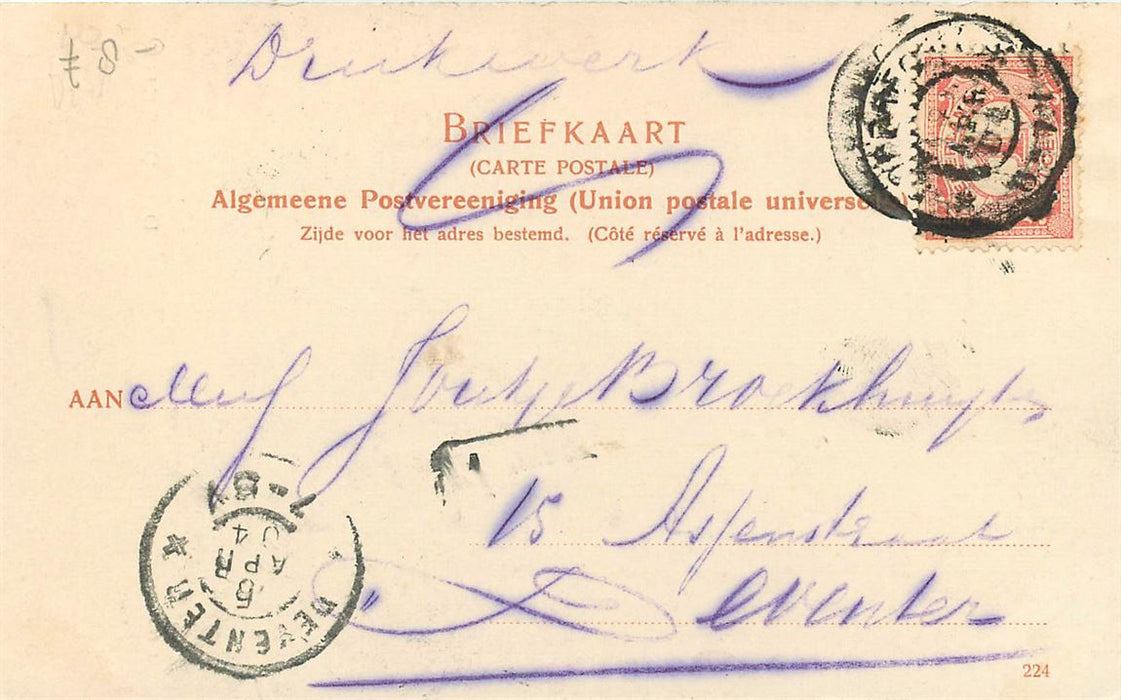 f 8-
Drukwerk
BRIEFKAART
(CARTE POSTALE)
Algemeene Postvereeniging (Union postale universe
Zijde voor het adres bestemd. (Côté réservé à l'adresse.)
AAN Mej Broekhuyse
15 Assenstraat
Deventer
DEVENTER
5 APR 04
224